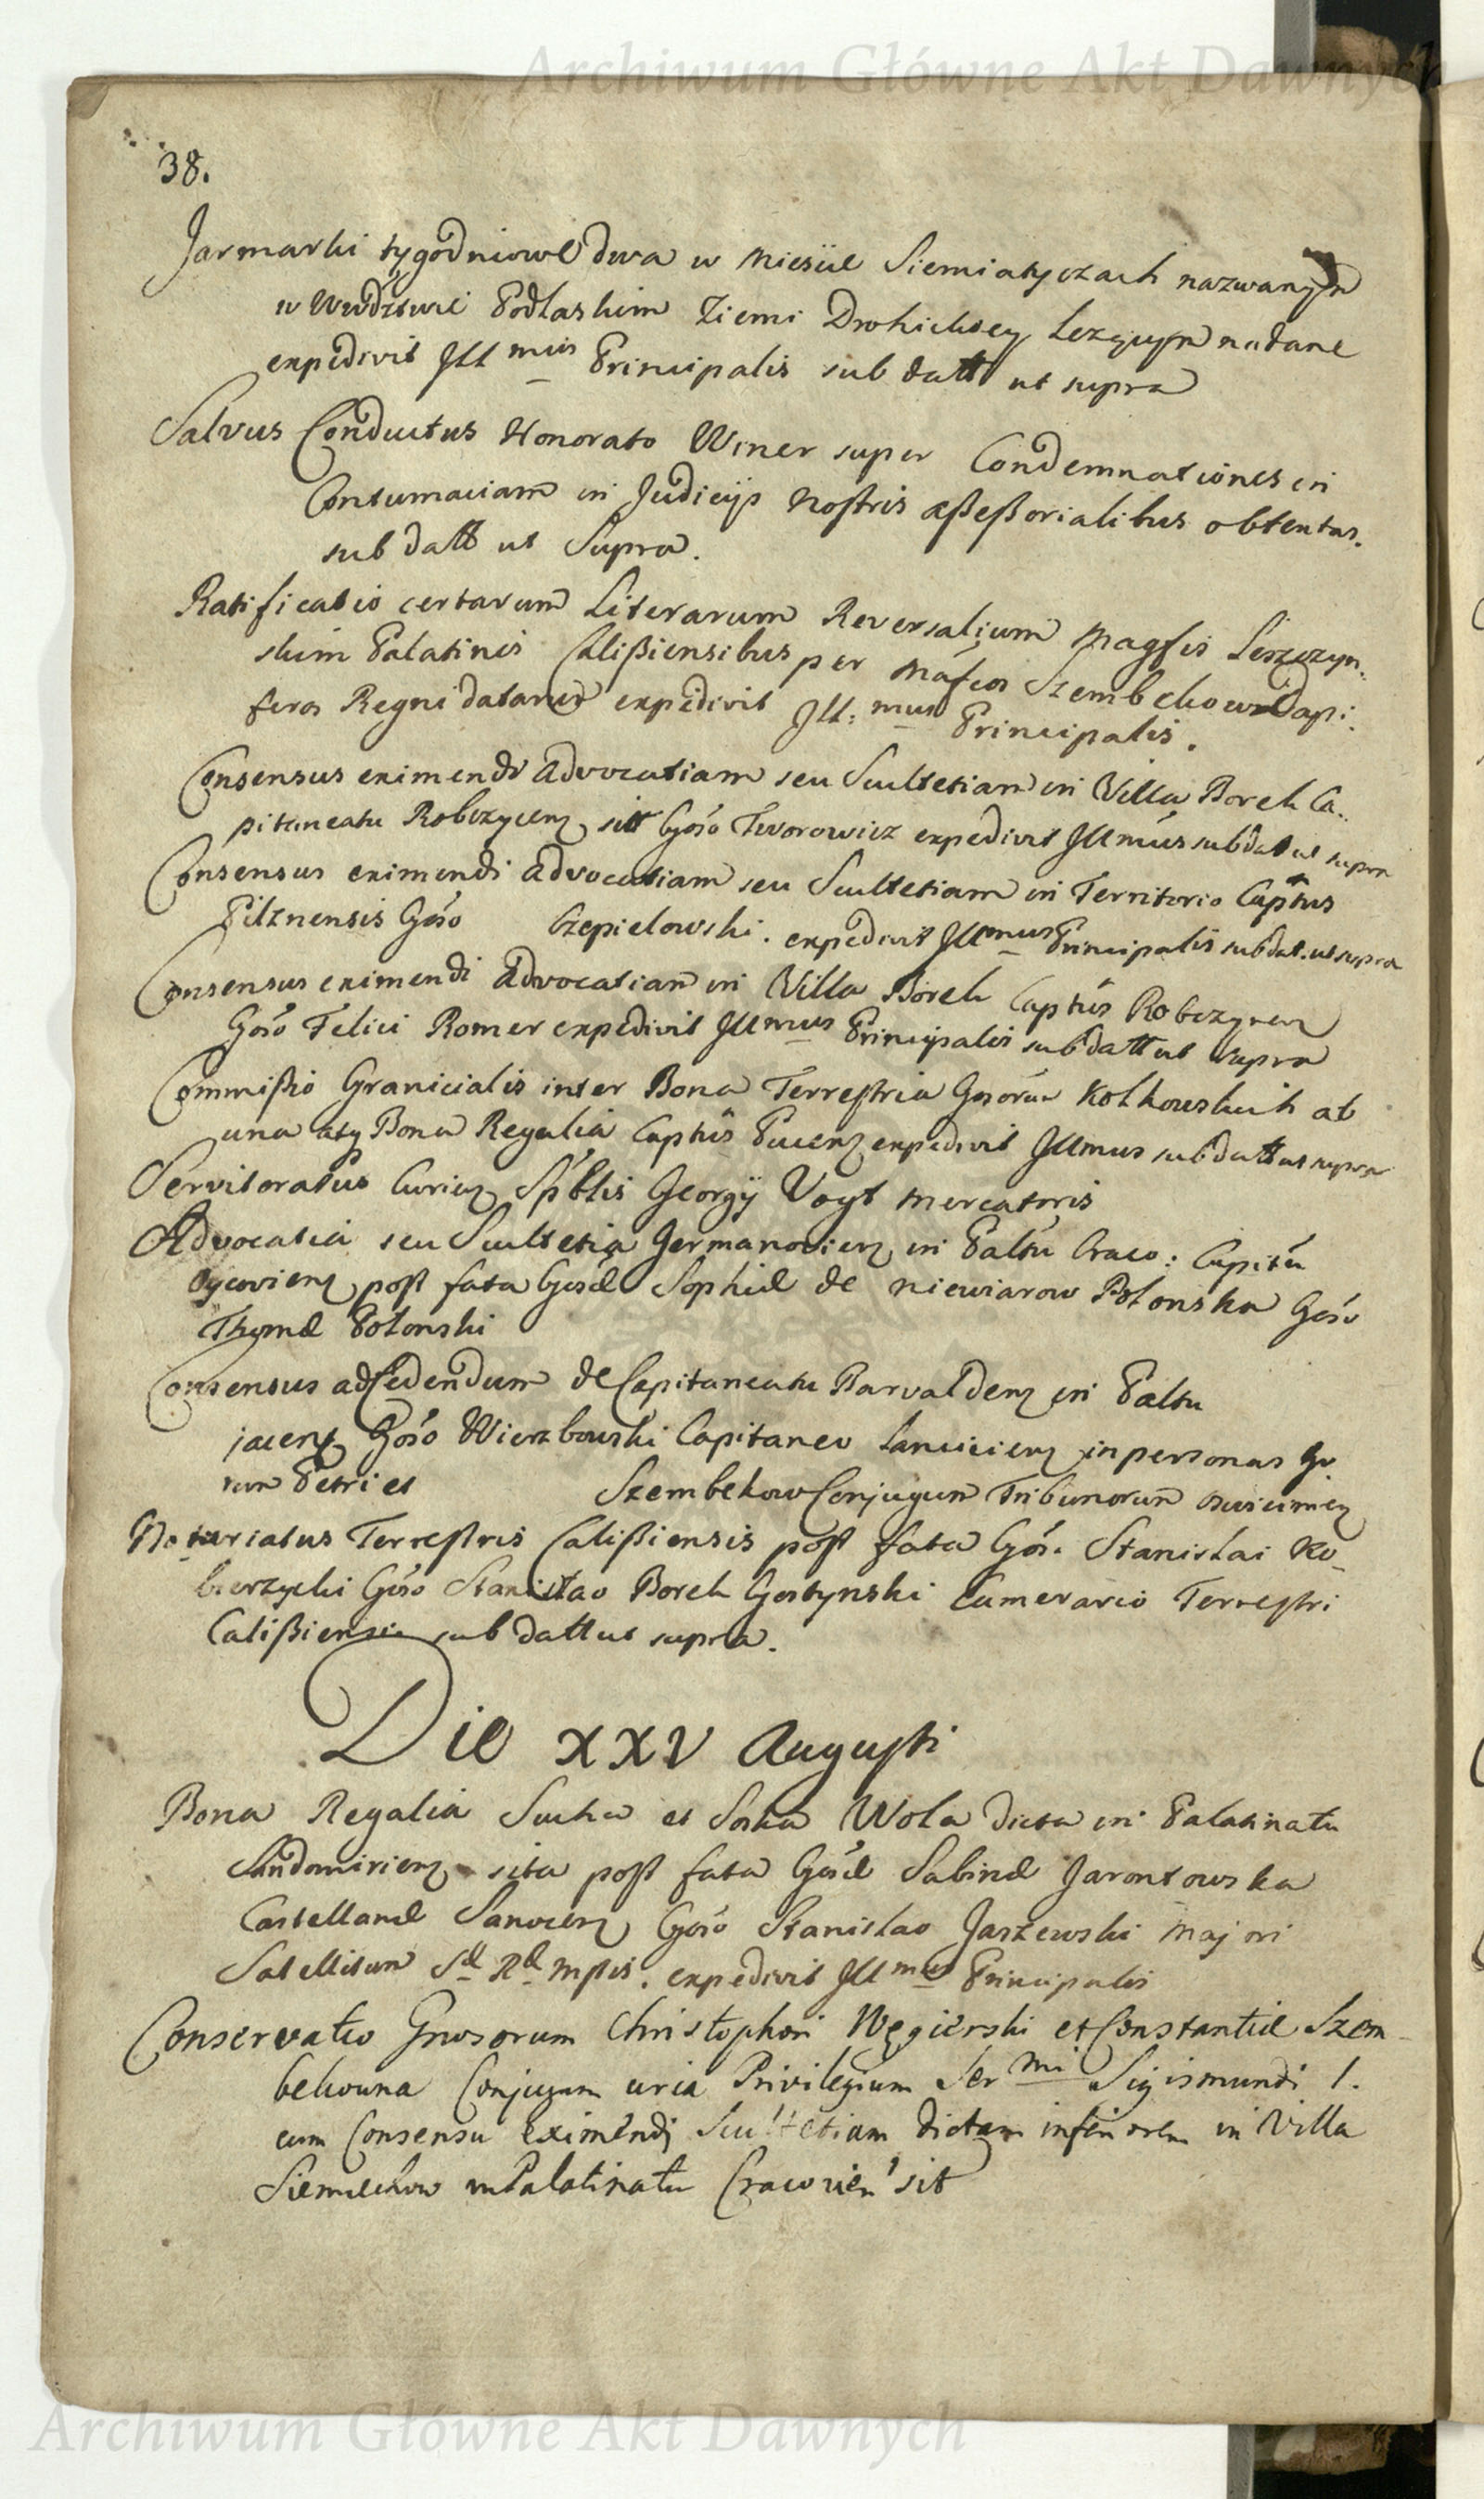 Archiwum Główne Akt Dawnych
38.
Jarmarki tygodniowe dwa w Miescie Siemiatyczach nazwanym
w Wwdztwie Podlaskim Ziemi Drohickiey Lezącym nadane
expedivit Ill mus Principalis sub datt ut supra
Salvus Conductus Honorato Winer super Condemnationes in
Contumaciam in Judicijs Nostris aßeßorialibus obtentas.
sub datt ut Supra.
Ratificatio certarum Literarum Reversalium Magfis Leszczyn.
skim Palatinis Calißiensibus per Mafcos Szembekow Dapi.
feros Regni datarum expedivit Ill: mus Principalis.
Consensus eximendi Advocatiam seu Scultetiam in Villa Borek Ca..
pitaneatu Robczycen sitt Goso Tworowicz expedivit Illmus sub dat ut supra
Consensus eximendi Advocatiam seu Scultetiam in Territorio Captus
Pilznensis Goso Czepielowski. expedivit Illmus Principalis sub dat. ut supra
Consensus eximendi Advocatiam in Villa Borek Captus Robczycen
Goso Felici Romer expedivit Illmus Principalis sub datt ut supra
Commißio Granicialis inter Bona Terrestria Gosorum Kotkowskich ab
una atq Bona Regalia Captus Pucen expedivit Illmus sub datt ut supra
Servitoratus Curien Spblis Georgij Voyt Mercatoris
Advocatia seu Scultetia Germanovien in Paltu Craco: Capitu
Oycovien post fata Gosæ Sophiæ de Niewiarow Polonska Goso
Thomæ Polonski
Consensus ad Cedendum de Capitaneatu Barvalden in Paltu
jacen Goso Wierzbowski Capitaneo Lancicien in personas Go
rum Petri et Szembekow Conjugum Tribunorum Oswiecimen
Notariatus Terrestris Calißiensis post fata Gos. Stanislai Ko_
bierzycki Goso Stanislao Borek Gostynski Camerario Terrestri
Calißiensi sub datt ut supra.
Die XXV Augusti
Bona Regalia Sucha et Soska Wola dicta in Palatinatu
Sandomirien sita post fata Gosæ Sabinæ Jarontowska
Castellanæ Sanocen Goso Stanislao Jaszewski Majori
Satellitum Sæ Ræ Mptis. expedivit Ill mus Principalis
Conservatio Gnosorum Christophori Węgierski et Constantiæ Szem_
bekowna Conjugum circa Privilegium Ser mi Sigismundi I.
cum Consensu Eximendi Scultetiam dictam inferiorem in Villa
Siemiechow in Palatinatu Cracovien sit
Archiwum Główne Akt Dawnych